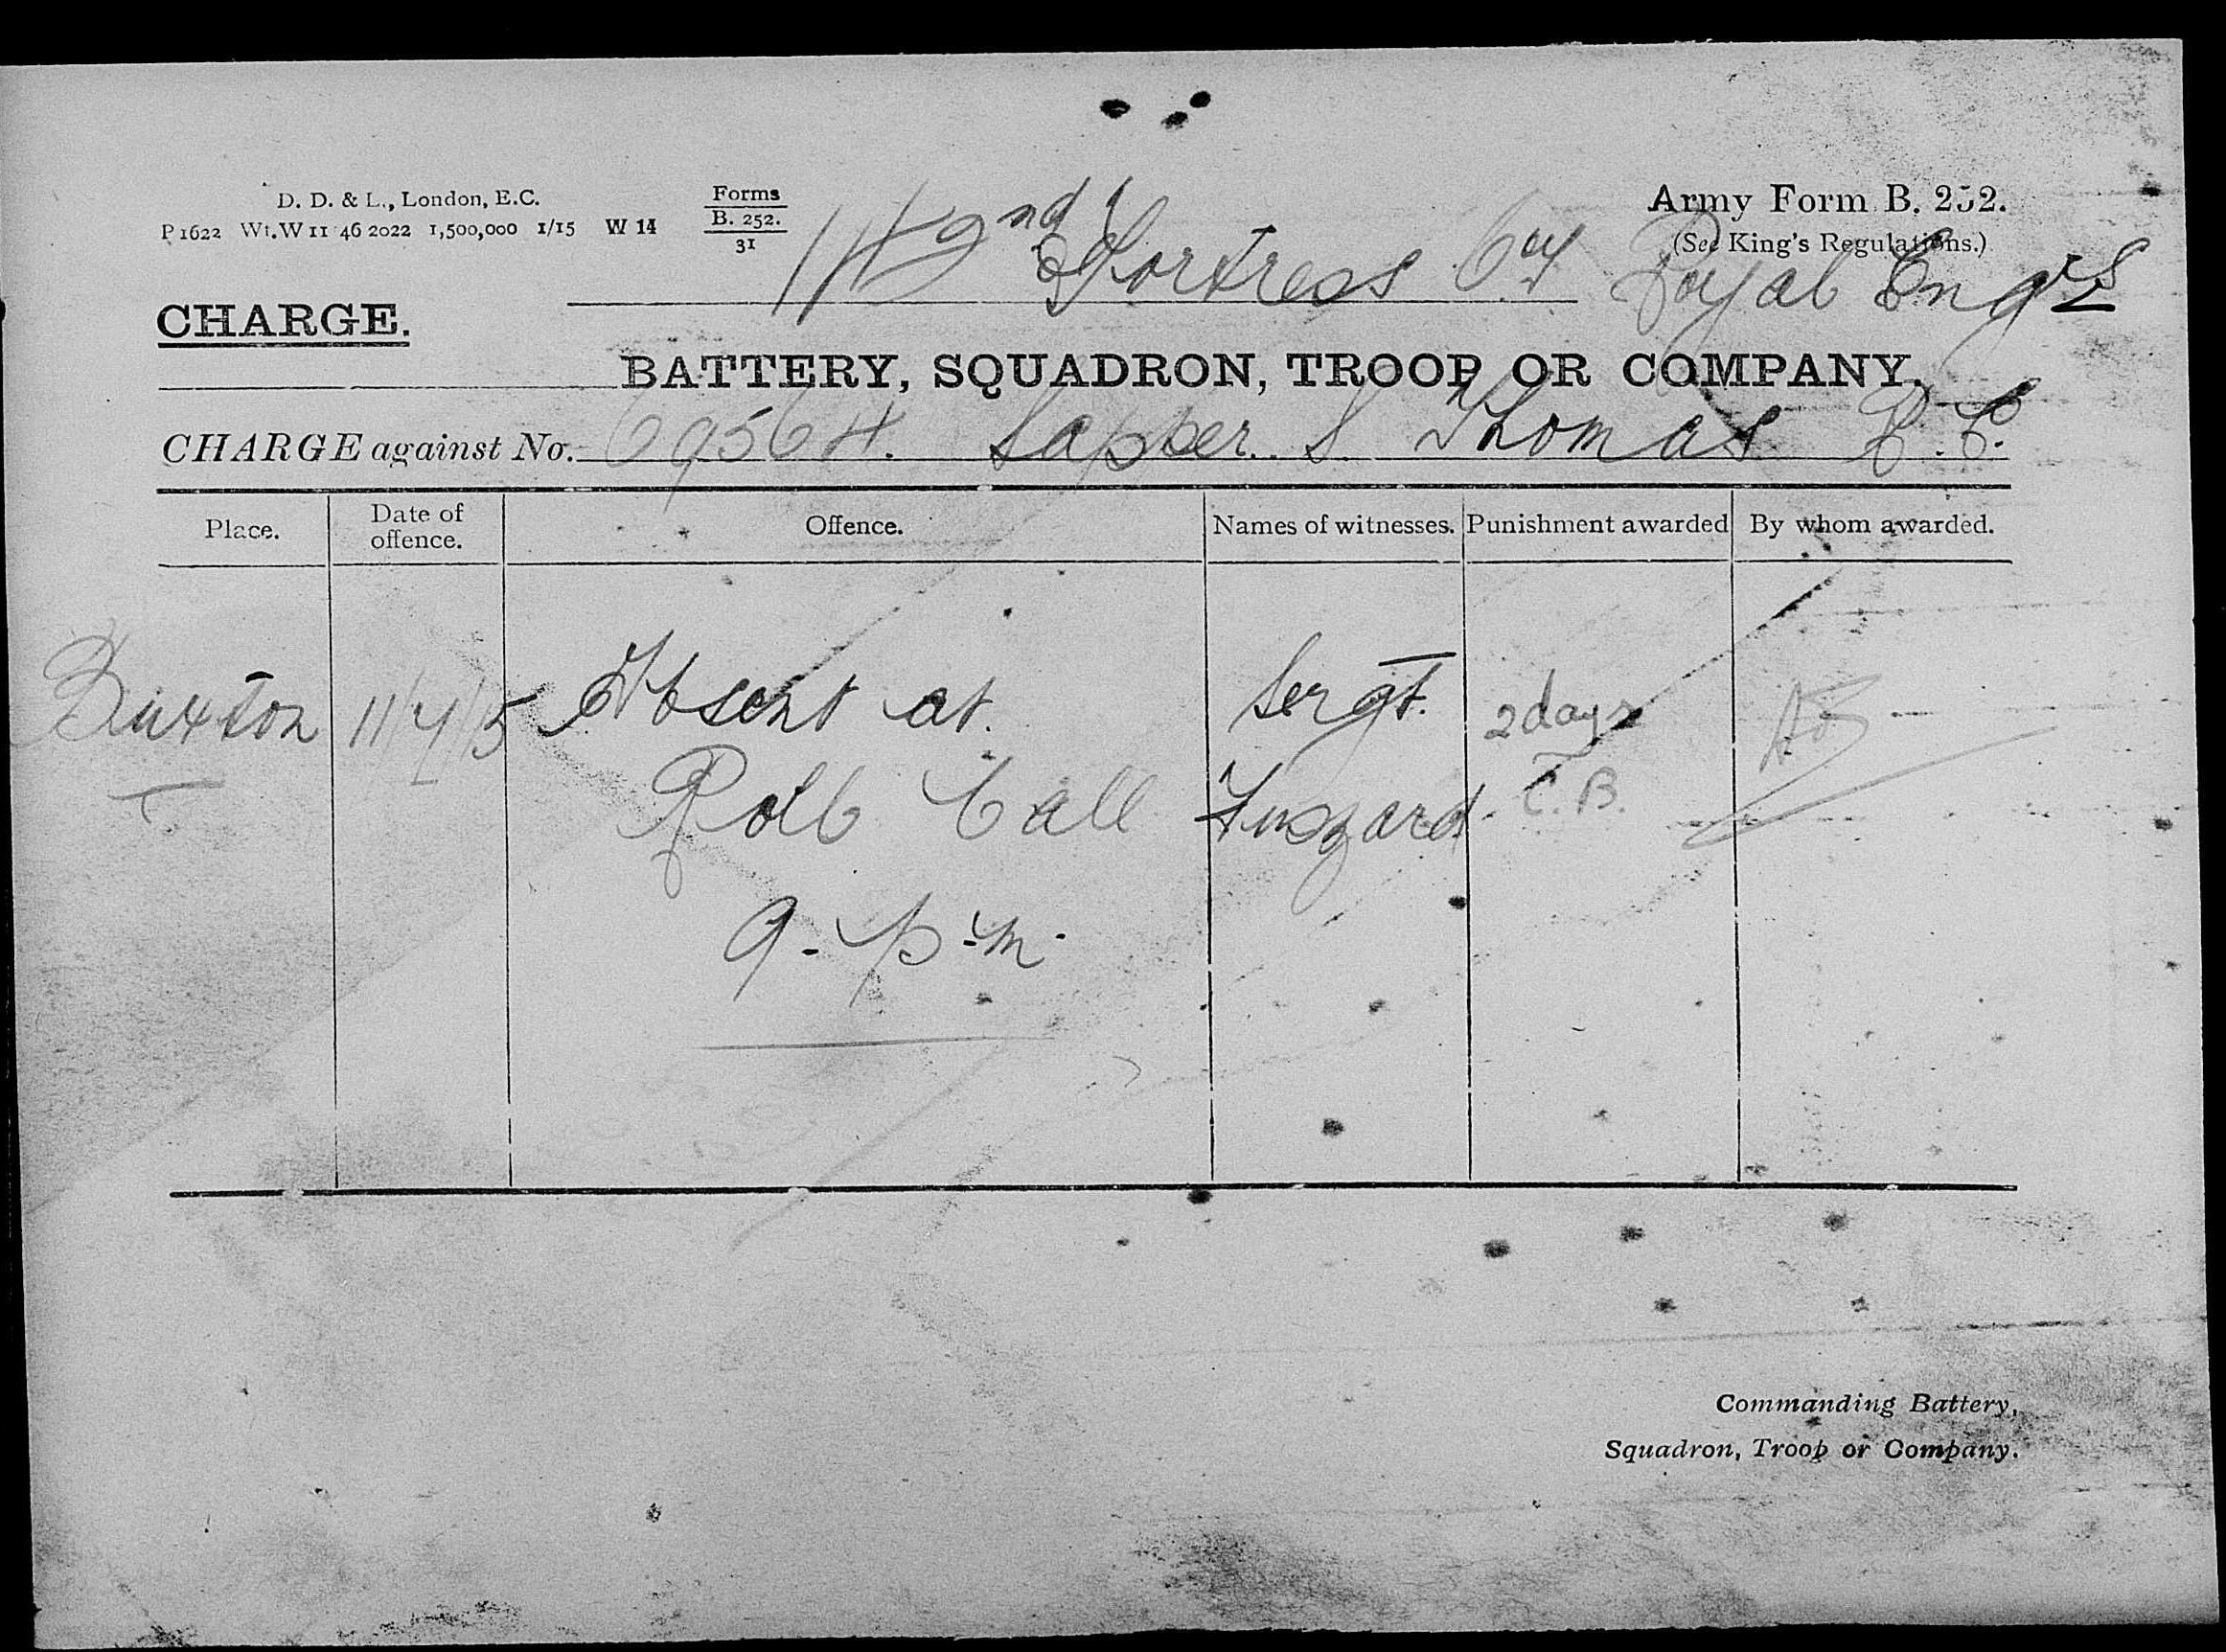 D. D. & L., London, E.C.
P 1622 Wt.W 11 46 2022 1,500,000 1/15 W 14
Forms
B. 252.
31
Army Form B. 252.
(See King's Regulations.)
142nd Fortress Coy Royal Engrs
CHARGE.
BATTERY, SQUADRON, TROOP OR COMPANY.
CHARGE against No. 69564. Sapper. S Thomas R.E.
Place. Date of offence. Offence. Names of witnesses. Punishment awarded By whom awarded.
Buxton 11/7/15 Absent at Sergt. 2 days
Roll Call Fuszard. C.B.
9. p.m.
Commanding Battery,
Squadron, Troop or Company.